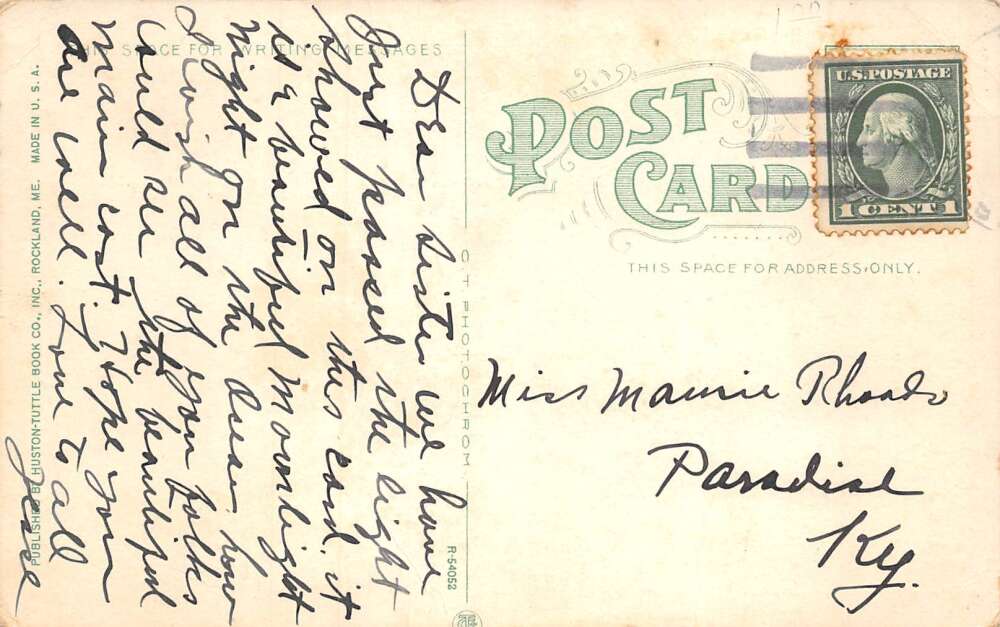 THIS SPACE FOR WRITING MESSAGES
Dear Sister we have
Just passed the light
showed on this card. it
is a beautiful Moonlight
Night on the Ocean how
I wish all of you folks
could see the beautiful
Main cost. I Hope you
are well. Love to all
Jesse
PUBLISHED BY HUSTON-TUTTLE BOOK CO., INC., ROCKLAND, ME. MADE IN U. S. A.
CT PHOTOCHROM
R-54052
POST CARD
U.S. POSTAGE
1 CENT 1
THIS SPACE FOR ADDRESS ONLY.
Miss Maurie Rhoads
Paradise
Ky.